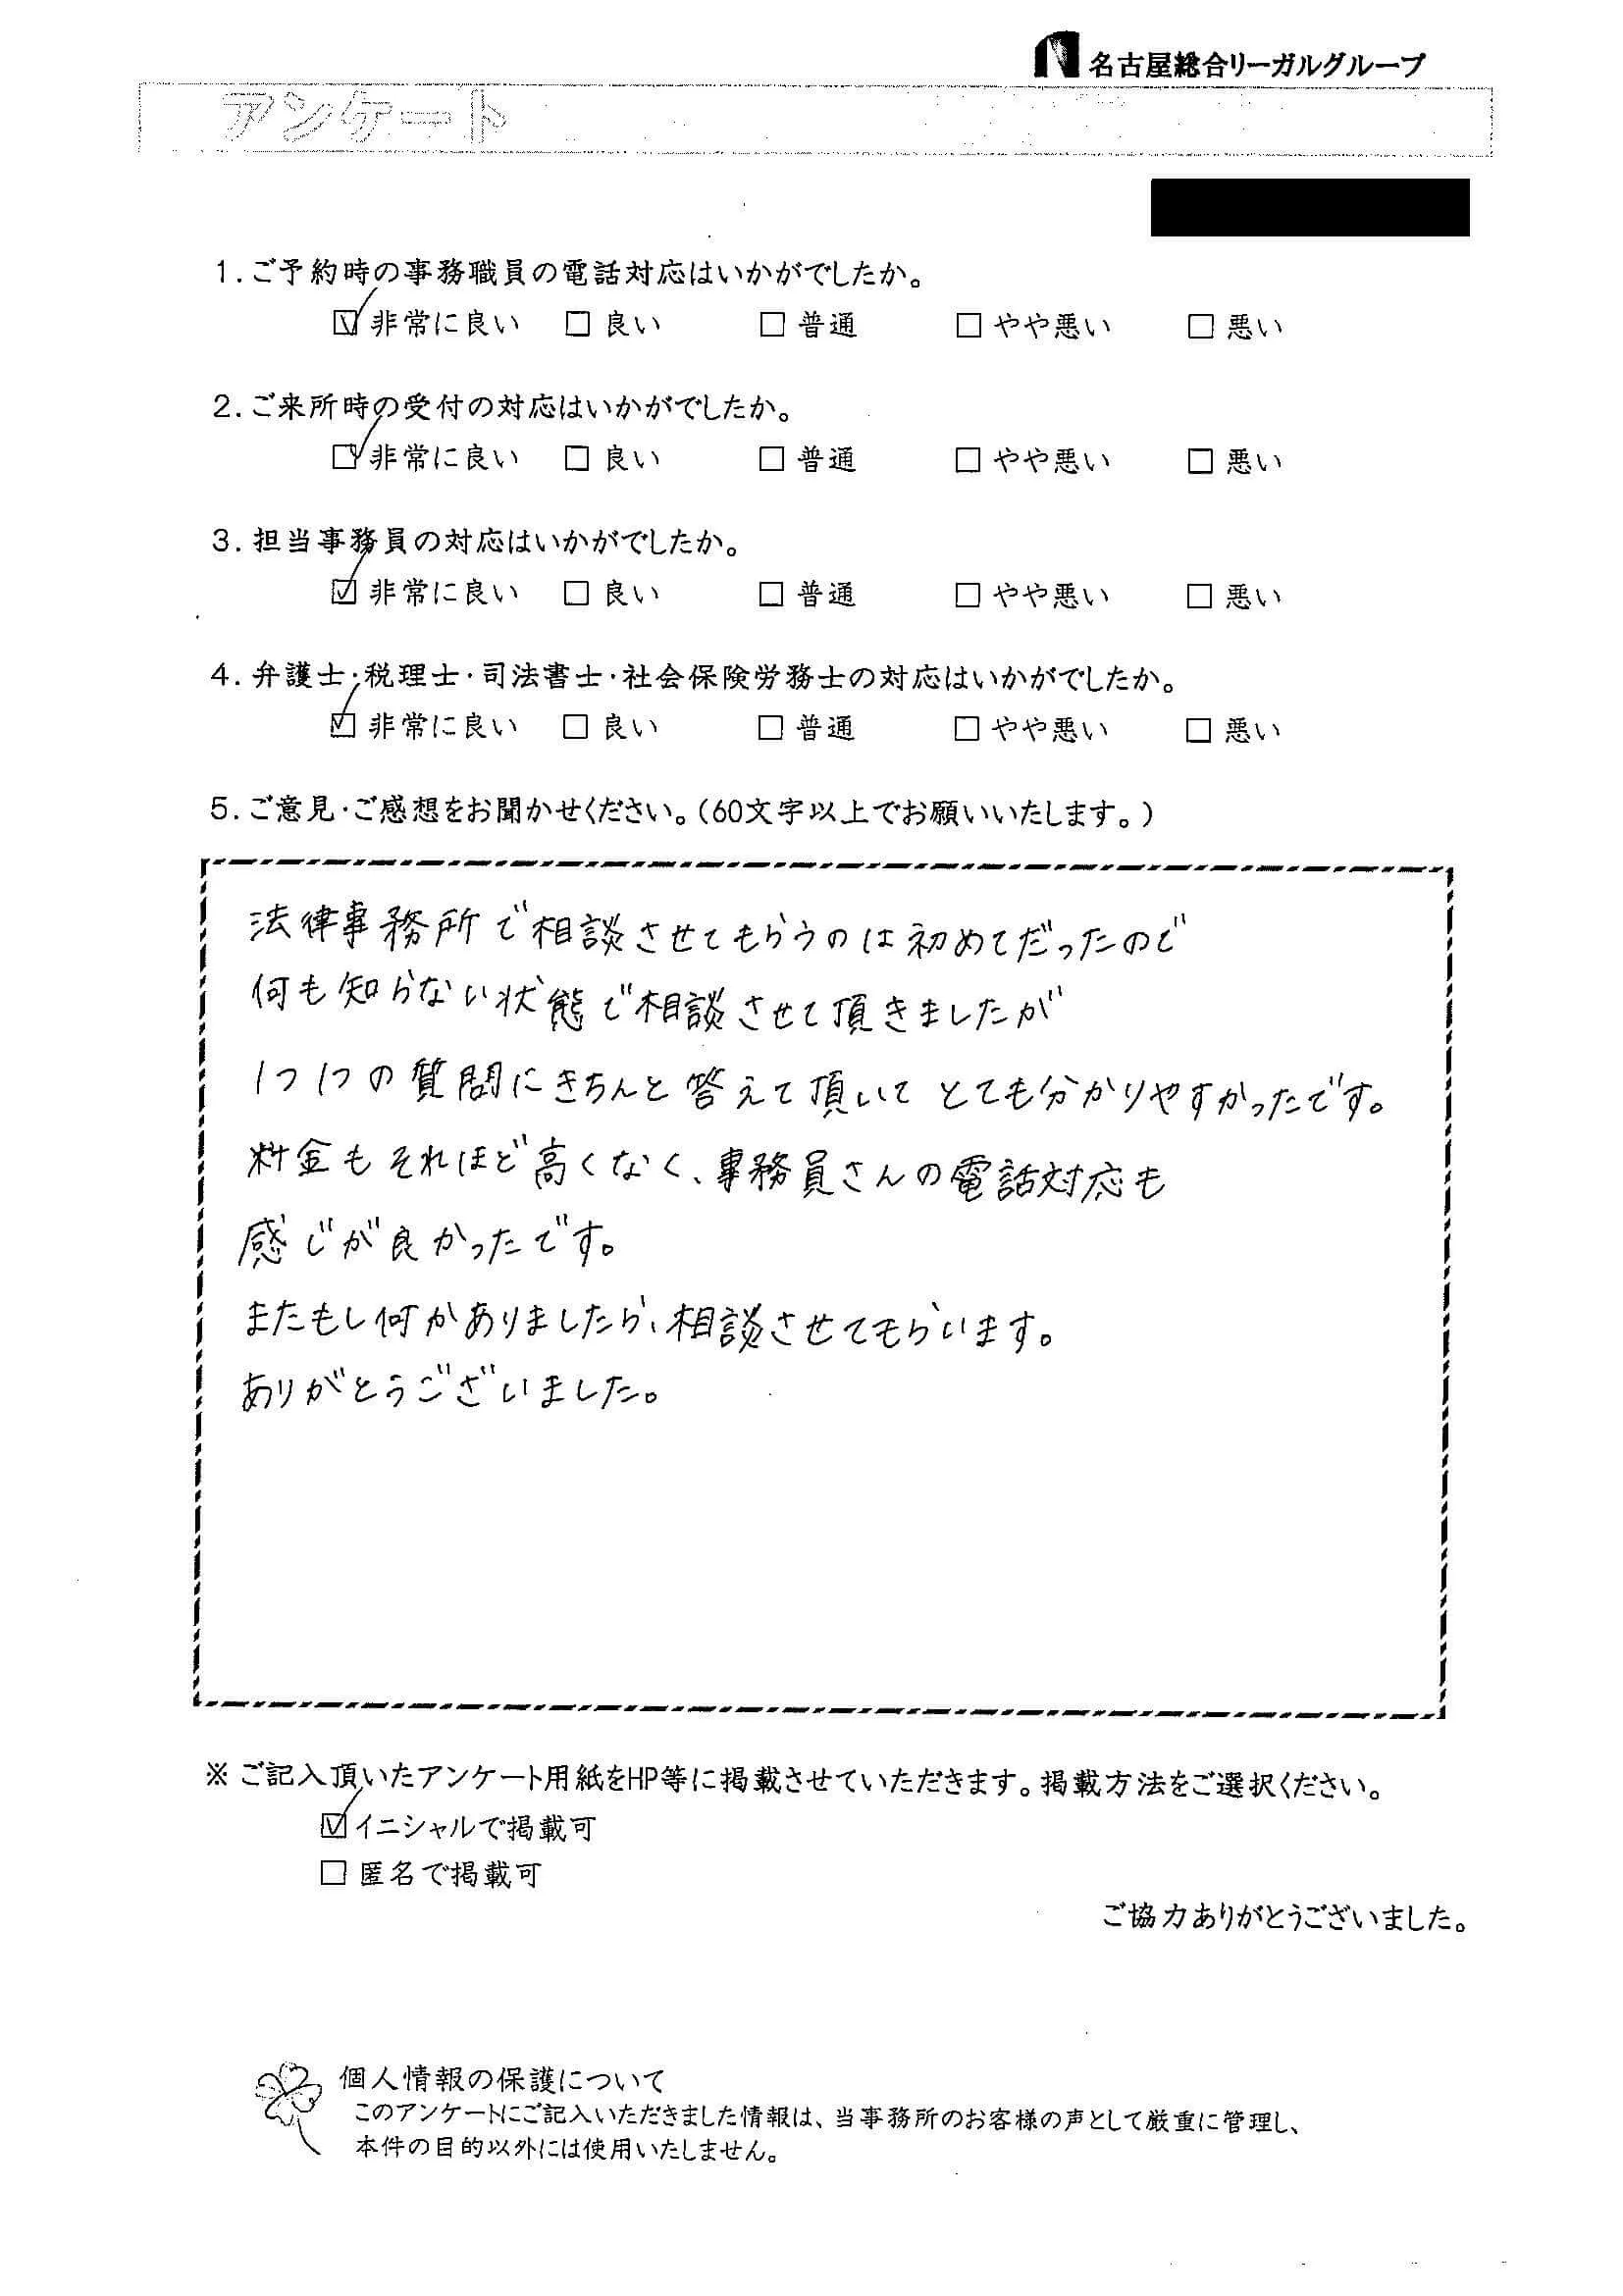 名古屋総合リーガルグループ
アンケート
1.ご予約時の事務職員の電話対応はいかがでしたか。
☑非常に良い □良い □普通 □やや悪い □悪い
2.ご来所時の受付の対応はいかがでしたか。
☑非常に良い □良い □普通 □やや悪い □悪い
3.担当事務員の対応はいかがでしたか。
☑非常に良い □良い □普通 □やや悪い □悪い
4.弁護士・税理士・司法書士・社会保険労務士の対応はいかがでしたか。
☑非常に良い □良い □普通 □やや悪い □悪い
5.ご意見・ご感想をお聞かせください。(60文字以上でお願いいたします。)
法律事務所で相談させてもらうのは初めてだったので
何も知らない状態で相談させて頂きましたが
1つ1つの質問にきちんと答えて頂いてとても分かりやすかったです。
料金もそれほど高くなく、事務員さんの電話対応も
感じが良かったです。
またもし何かありましたら、相談させてもらいます。
ありがとうございました。
※ご記入頂いたアンケート用紙をHP等に掲載させていただきます。掲載方法をご選択ください。
☑イニシャルで掲載可
□匿名で掲載可
ご協力ありがとうございました。
個人情報の保護について
このアンケートにご記入いただきました情報は、当事務所のお客様の声として厳重に管理し、
本件の目的以外には使用いたしません。